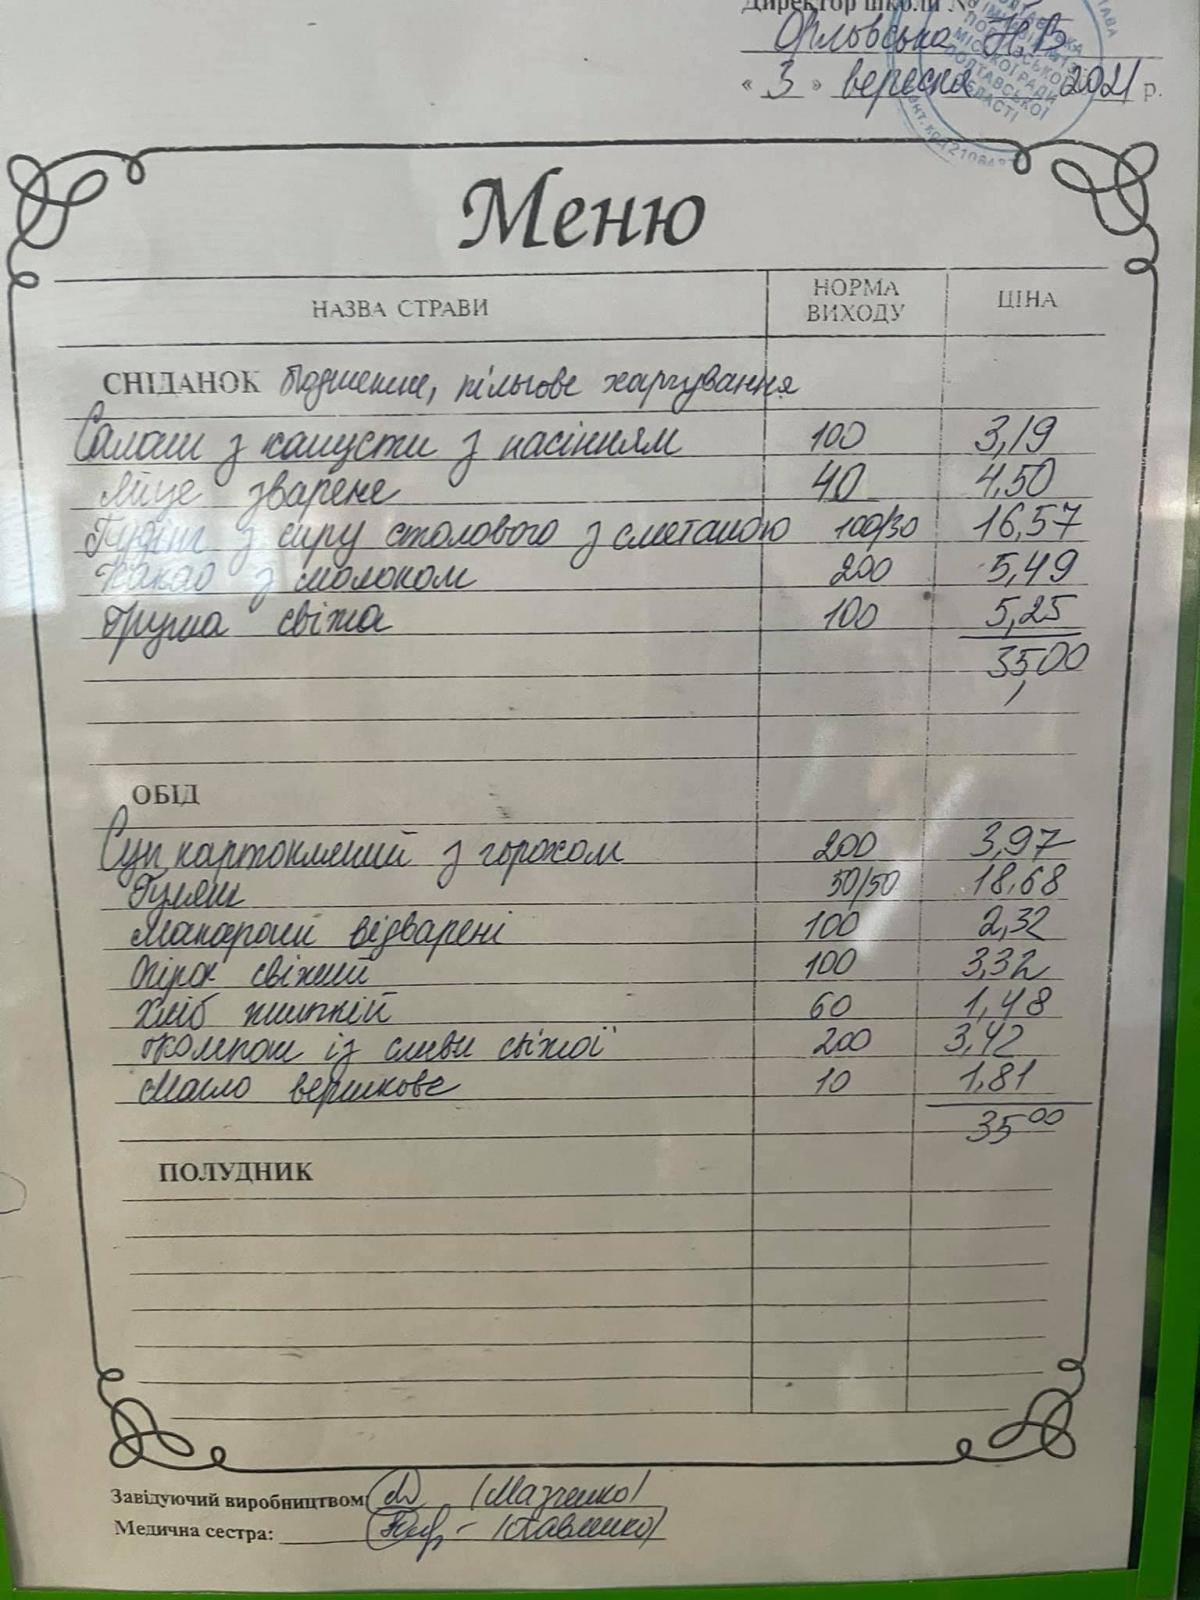 Директор школи №
Орловська Н.В
« 3 » вересня 2021 р.
ПОЛТАВСЬКА
МІСЬКОЇ РАДИ
ПОЛТАВСЬКОЇ
ОБЛАСТІ
Меню
НАЗВА СТРАВИ НОРМА ВИХОДУ ЦІНА
СНІДАНОК пільгове харчування
Салат з капусти з насінням 100 3,19
Яйце зварене 40 4,50
Пудінг з сиру столового з сметаною 100/30 16,57
Какао з молоком 200 5,49
Груша свіжа 100 5,25
35,00
ОБІД
Суп картопляний з горохом 200 3,97
Гуляш 50/50 18,68
Макарони відварені 100 2,32
Огірок свіжий 100 3,32
Хліб житній 60 1,48
Компот із сливи свіжої 200 3,42
Масло вершкове 10 1,81
35 00
ПОЛУДНИК
Завідуючий виробництвом
Медична сестра: